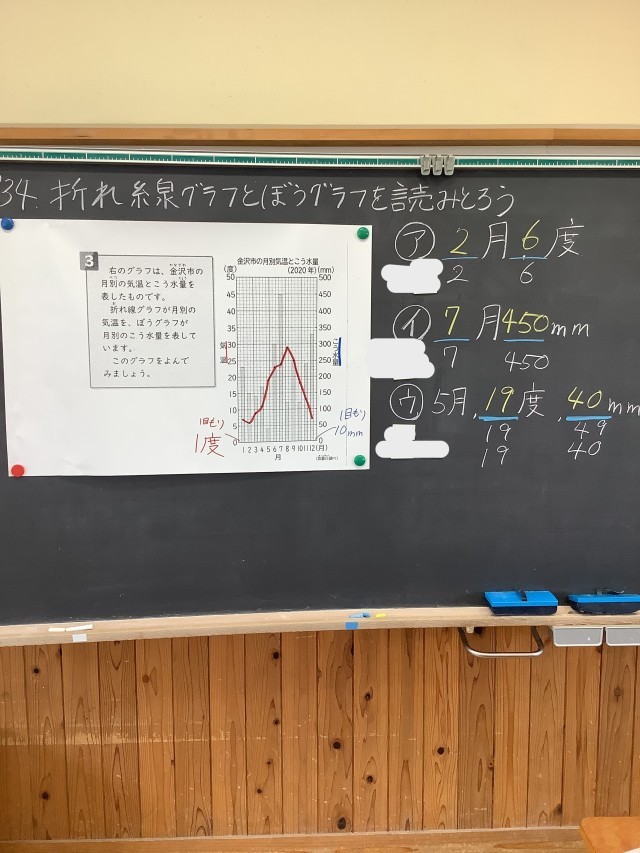 34. 折れ糸泉グラフとぼうグラフを読みとろう
3
右のグラフは、金沢市の
月別の気温とこう水量を
表したものです。
折れ線グラフが月別の
気温を、ぼうグラフが
月別のこう水量を表して
います。
このグラフをよんで
みましょう。
金沢市の月別気温とこう水量
(度) (2020年) (mm)
50 500
45 450
40 400
35 350
30 300
25 250
20 200
15 150
10 100
5 50
0 0
気温
こう水量
1 2 3 4 5 6 7 8 9 10 11 12 (月)
月
1目もり
1度
1目もり
10mm
ア 2月6度
2 6
イ 7月450mm
7 450
ウ 5月,19度,40mm
19 49
19 40